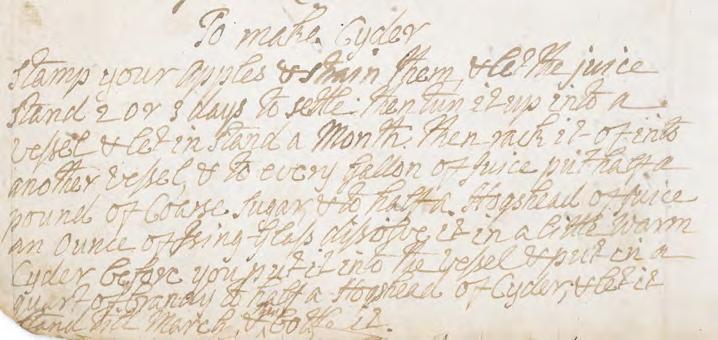 To make Cyder
Stamp your apples & strain them, & let the juice
stand 2 or 3 days to settle. then tun it up into a
vessel & let in stand a Month. then rack it of into
another vessel, & to every gallon of Juice put half a
pound of Coarse Sugar, & to half a Hogshead of Juice
an Ounce of Jsing Glass dissolve it in a little Warm
Cyder before you put it into the vessel & put in a
quart of brandy to half a Hogshead of Cyder, & let it
stand till March, & then bottle it.